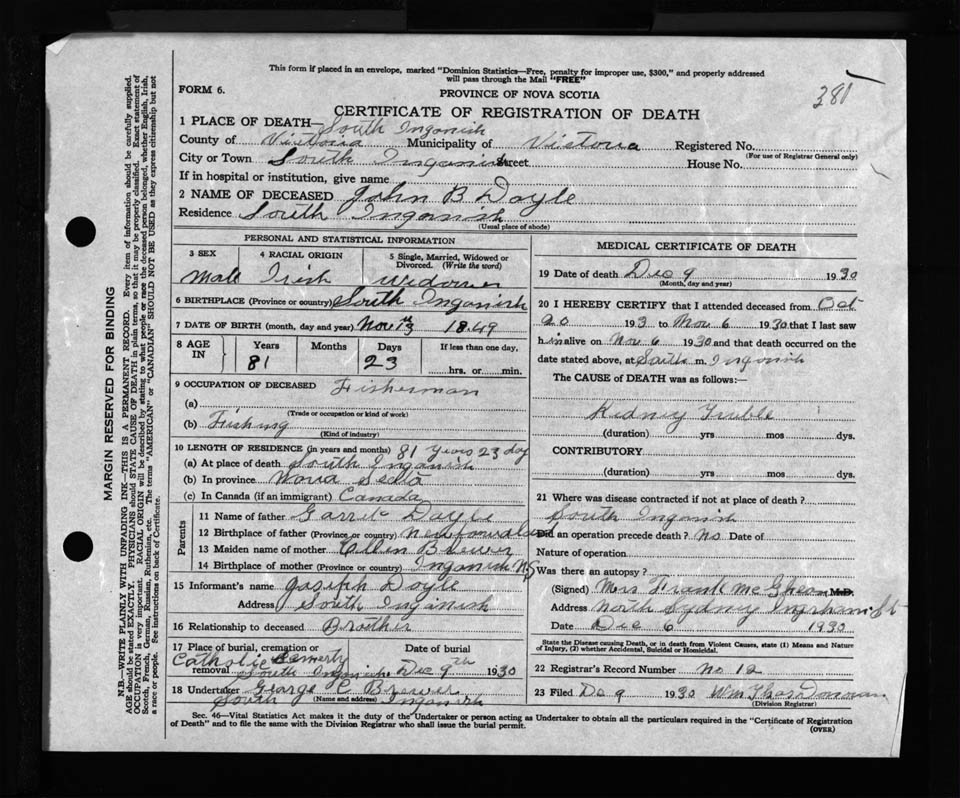 This form if placed in an envelope, marked "Dominion Statistics—Free, penalty for improper use, $300," and properly addressed
will pass through the Mail "FREE"
FORM 6.
PROVINCE OF NOVA SCOTIA
381
CERTIFICATE OF REGISTRATION OF DEATH
1 PLACE OF DEATH—South Inganish
County of Victoria Municipality of Victoria Registered No.
(For use of Registrar General only)
City or Town South Inganish Street House No.
If in hospital or institution, give name
2 NAME OF DECEASED John B Doyle
Residence South Inganish
(Usual place of abode)
PERSONAL AND STATISTICAL INFORMATION
3 SEX 4 RACIAL ORIGIN 5 Single, Married, Widowed or
Divorced. (Write the word)
Male Irish Widower
6 BIRTHPLACE (Province or country) South Inganish
7 DATE OF BIRTH (month, day and year) Nov 13th 1849
8 AGE IN Years Months Days If less than one day,
81 23 hrs. or min.
9 OCCUPATION OF DECEASED Fisherman
(a)
(Trade or occupation or kind of work)
(b) Fishing
(Kind of industry)
10 LENGTH OF RESIDENCE (in years and months) 81 years 23 day
(a) At place of death South Inganish
(b) In province Nova Scotia
(c) In Canada (if an immigrant) Canada
Parents
11 Name of father Garrit Doyle
12 Birthplace of father (Province or country)
13 Maiden name of mother Ellen Brewer
14 Birthplace of mother (Province or country) Inganish N.S
15 Informant's name Joseph Doyle
Address South Inganish
16 Relationship to deceased Brother
17 Place of burial, cremation or Date of burial
Catholic
removal South Inganish Dec 9th 1930
18 Undertaker George C Brewer
(Name and address)
South Inganish
MEDICAL CERTIFICATE OF DEATH
19 Date of death Dec 9 1930
(Month, day and year)
20 I HEREBY CERTIFY that I attended deceased from Oct
20 193 to Nov 6 1930 that I last saw
him alive on Nov 6 1930 and that death occurred on the
date stated above, at South m. Inganish
The CAUSE of DEATH was as follows:—
Kidney Truble
(duration) yrs mos dys.
CONTRIBUTORY
(duration) yrs mos dys.
21 Where was disease contracted if not at place of death?
South Inganish
Did an operation precede death? no Date of
Nature of operation
Was there an autopsy?
(Signed) Mrs Frank M.D.
Address North Sydney
Date Dec 6 1930
State the Disease causing Death, or in death from Violent Causes, state (1) Means and Nature
of Injury, (2) whether Accidental, Suicidal or Homicidal.
22 Registrar's Record Number No 12
23 Filed De 9 1930
(Division Registrar)
Sec. 46—Vital Statistics Act makes it the duty of the Undertaker or person acting as Undertaker to obtain all the particulars required in the "Certificate of Registration
of Death" and to file the same with the Division Registrar who shall issue the burial permit.
(OVER)
MARGIN RESERVED FOR BINDING
N.B.—WRITE PLAINLY WITH UNFADING INK—THIS IS A PERMANENT RECORD. Every item of information should be carefully supplied.
AGE should be stated EXACTLY. PHYSICIANS should STATE CAUSE OF DEATH in plain terms, so that it may be properly classified. Exact statement of
OCCUPATION is very important. RACIAL ORIGIN will be described by stating to what people or race the deceased person belonged, whether English, Irish,
Scotch, French, German, Russian, Ruthenian, etc. The terms "AMERICAN" or "CANADIAN" SHOULD NOT BE USED as they express citizenship but not
a race or people. See instructions on back of Certificate.